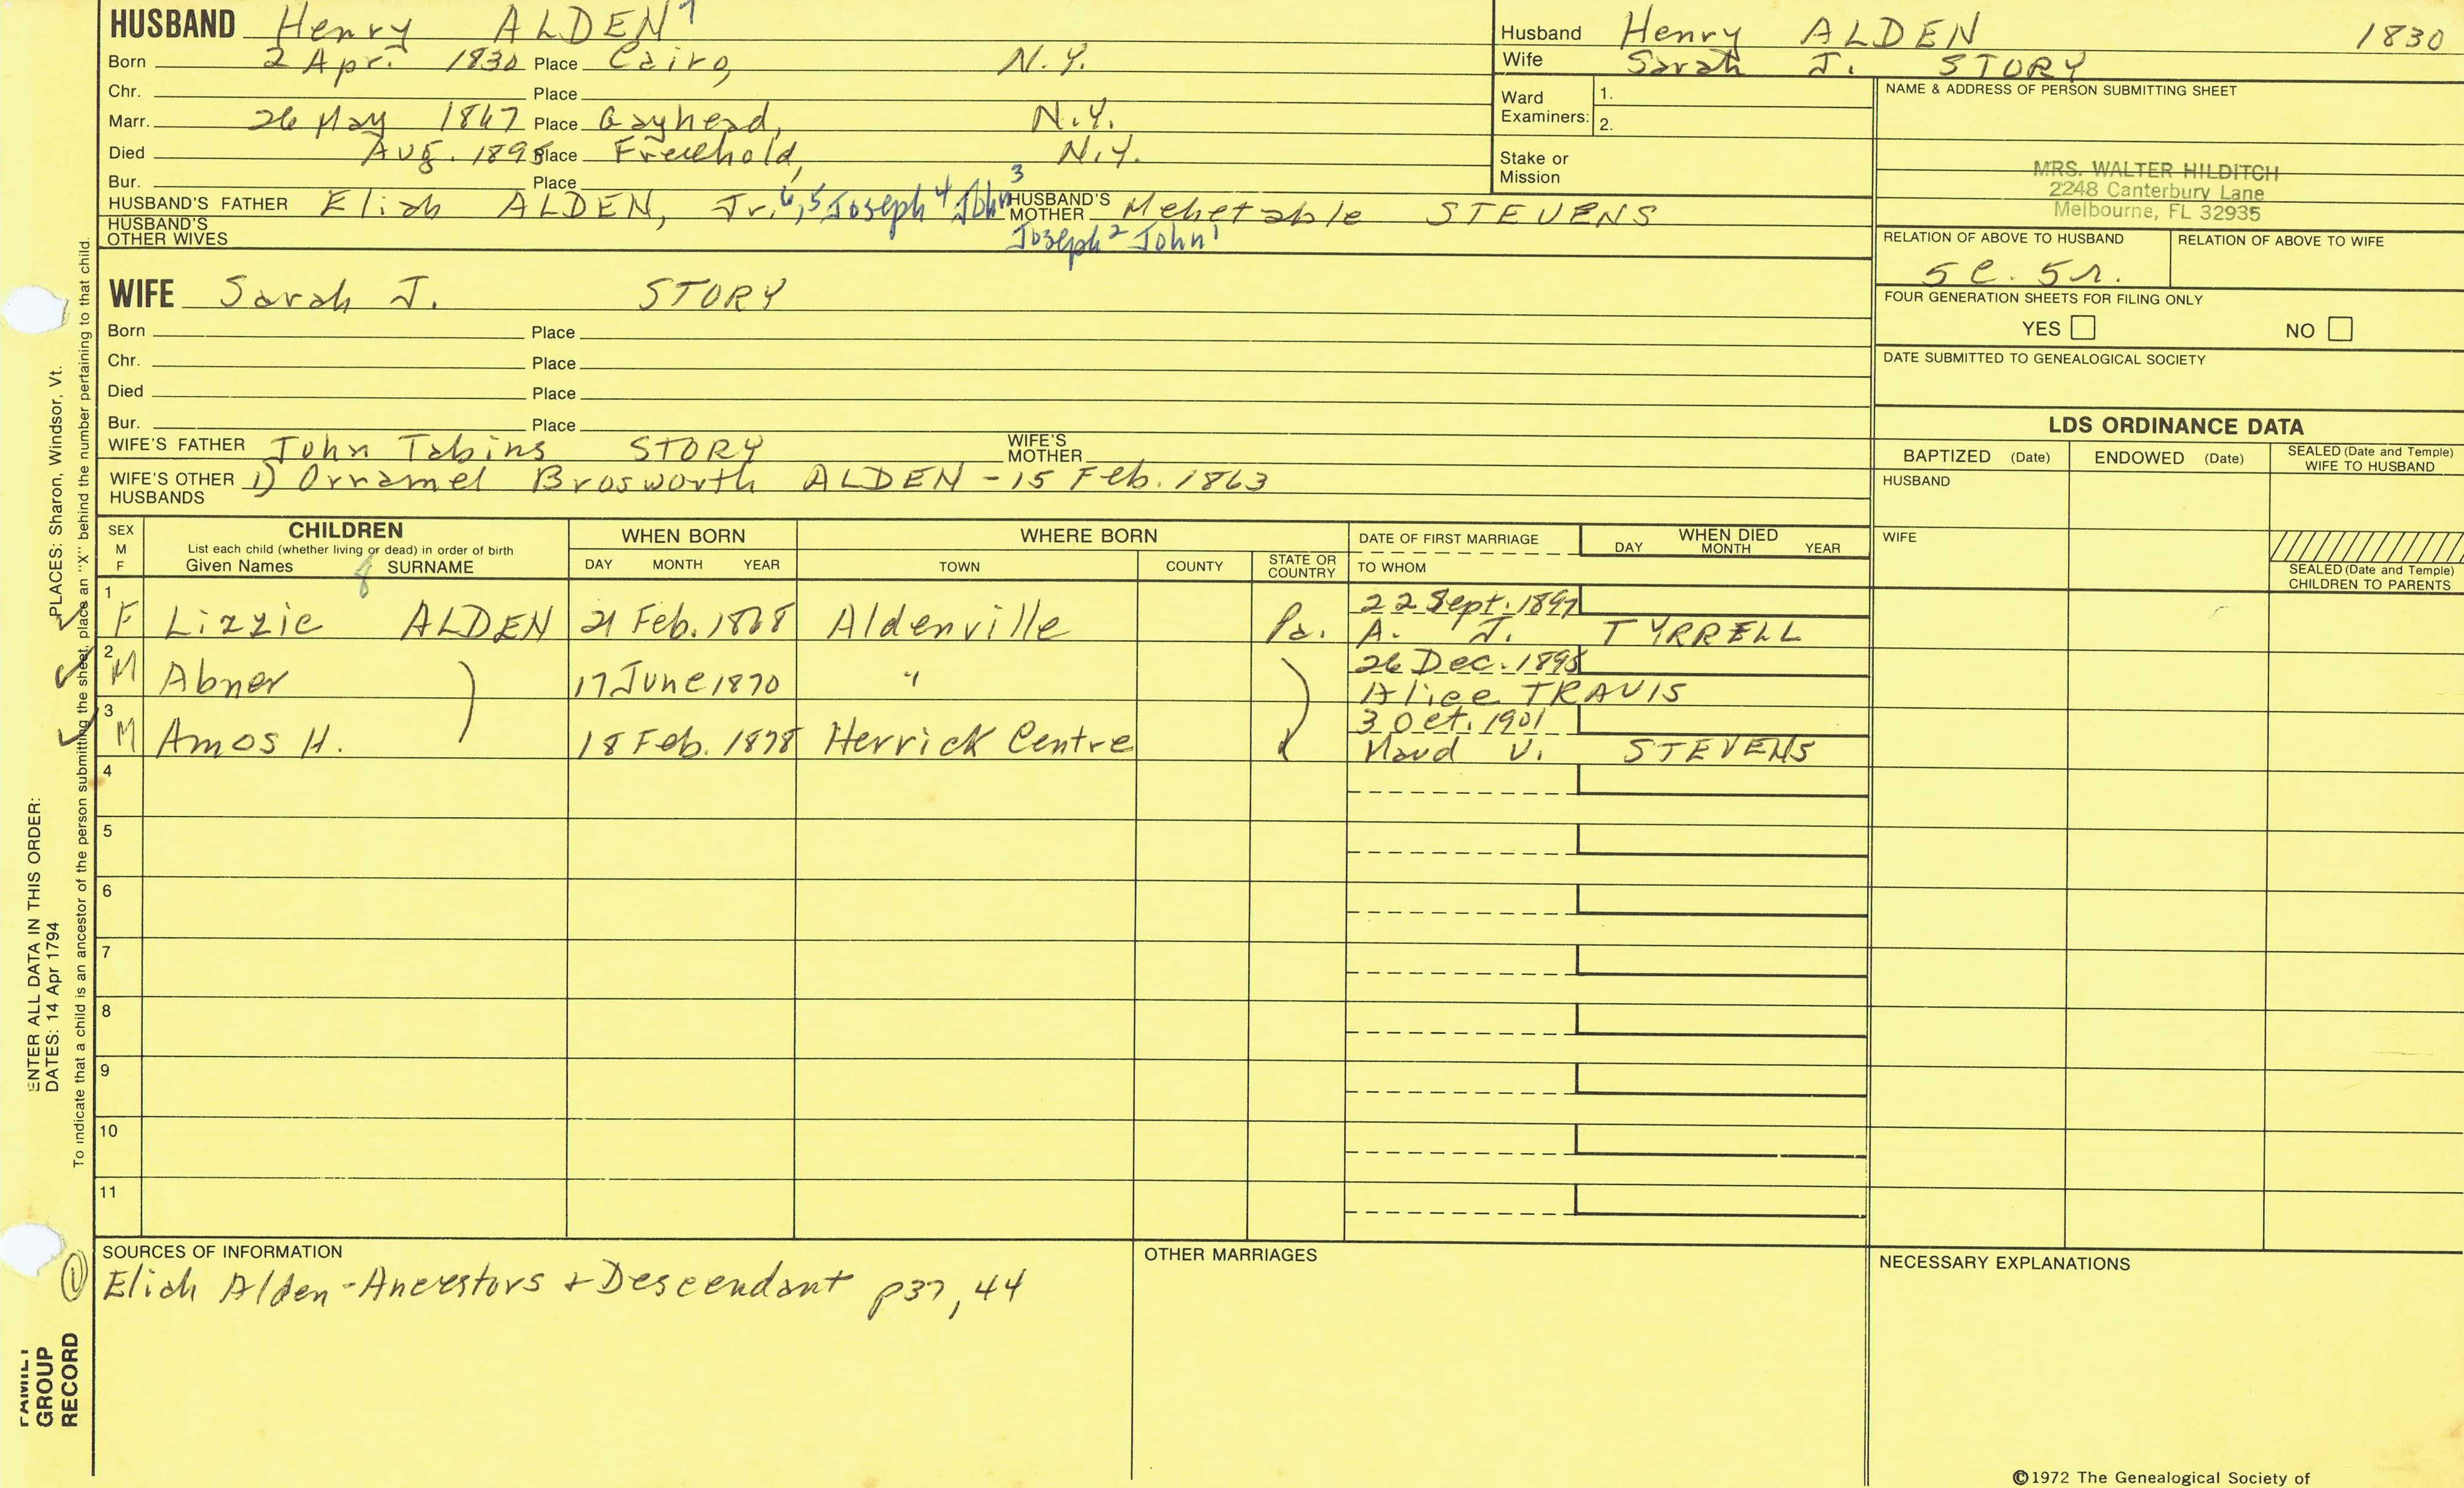 HUSBAND Henry ALDEN 7
Born 2 Apr. 1830 Place Cairo, N.Y.
Chr. Place
Marr. 26 May 1867 Place Gayhead, N.Y.
Died Aug. 1895 Place Freehold, N.Y.
Bur. Place
HUSBAND'S FATHER Eliah ALDEN, Jr. 6, 5 Joseph 4 John 3 HUSBAND'S MOTHER Mehetable STEVENS
HUSBAND'S OTHER WIVES Joseph 2 John 1
Husband Henry ALDEN 1830
Wife Sarah J. STORY
Ward Examiners: 1.
2.
Stake or Mission
NAME & ADDRESS OF PERSON SUBMITTING SHEET
MRS. WALTER HILDITCH
2248 Canterbury Lane
Melbourne, FL 32935
RELATION OF ABOVE TO HUSBAND RELATION OF ABOVE TO WIFE
5 C. 5 r.
FOUR GENERATION SHEETS FOR FILING ONLY
YES NO
DATE SUBMITTED TO GENEALOGICAL SOCIETY
WIFE Sarah J. STORY
Born Place
Chr. Place
Died Place
Bur. Place
WIFE'S FATHER John Tabins STORY WIFE'S MOTHER
WIFE'S OTHER HUSBANDS 1) Ornamel Brosworth ALDEN - 15 Feb. 1863
LDS ORDINANCE DATA
BAPTIZED (Date) ENDOWED (Date) SEALED (Date and Temple) WIFE TO HUSBAND
HUSBAND
WIFE
SEALED (Date and Temple) CHILDREN TO PARENTS
SEX M F
CHILDREN
List each child (whether living or dead) in order of birth
Given Names 8 SURNAME
WHEN BORN
DAY MONTH YEAR
WHERE BORN
TOWN COUNTY STATE OR COUNTRY
DATE OF FIRST MARRIAGE
TO WHOM
WHEN DIED
DAY MONTH YEAR
1 F Lizzie ALDEN 21 Feb. 1868 Aldenville Pa. 22 Sept. 1897
A. J. TYRRELL
2 M Abner 17 June 1870 " 26 Dec. 1895
Alice TRAVIS
3 M Amos H. 18 Feb. 1878 Herrick Centre 3 Oct. 1901
Maud V. STEVENS
4
5
6
7
8
9
10
11
SOURCES OF INFORMATION
① Eliah Alden - Ancestors + Descendant p37, 44
OTHER MARRIAGES
NECESSARY EXPLANATIONS
©1972 The Genealogical Society of
ENTER ALL DATA IN THIS ORDER:
DATES: 14 Apr 1794 PLACES: Sharon, Windsor, Vt.
To indicate that a child is an ancestor of the person submitting the sheet, place an "X" behind the number pertaining to that child.
FAMILY GROUP RECORD